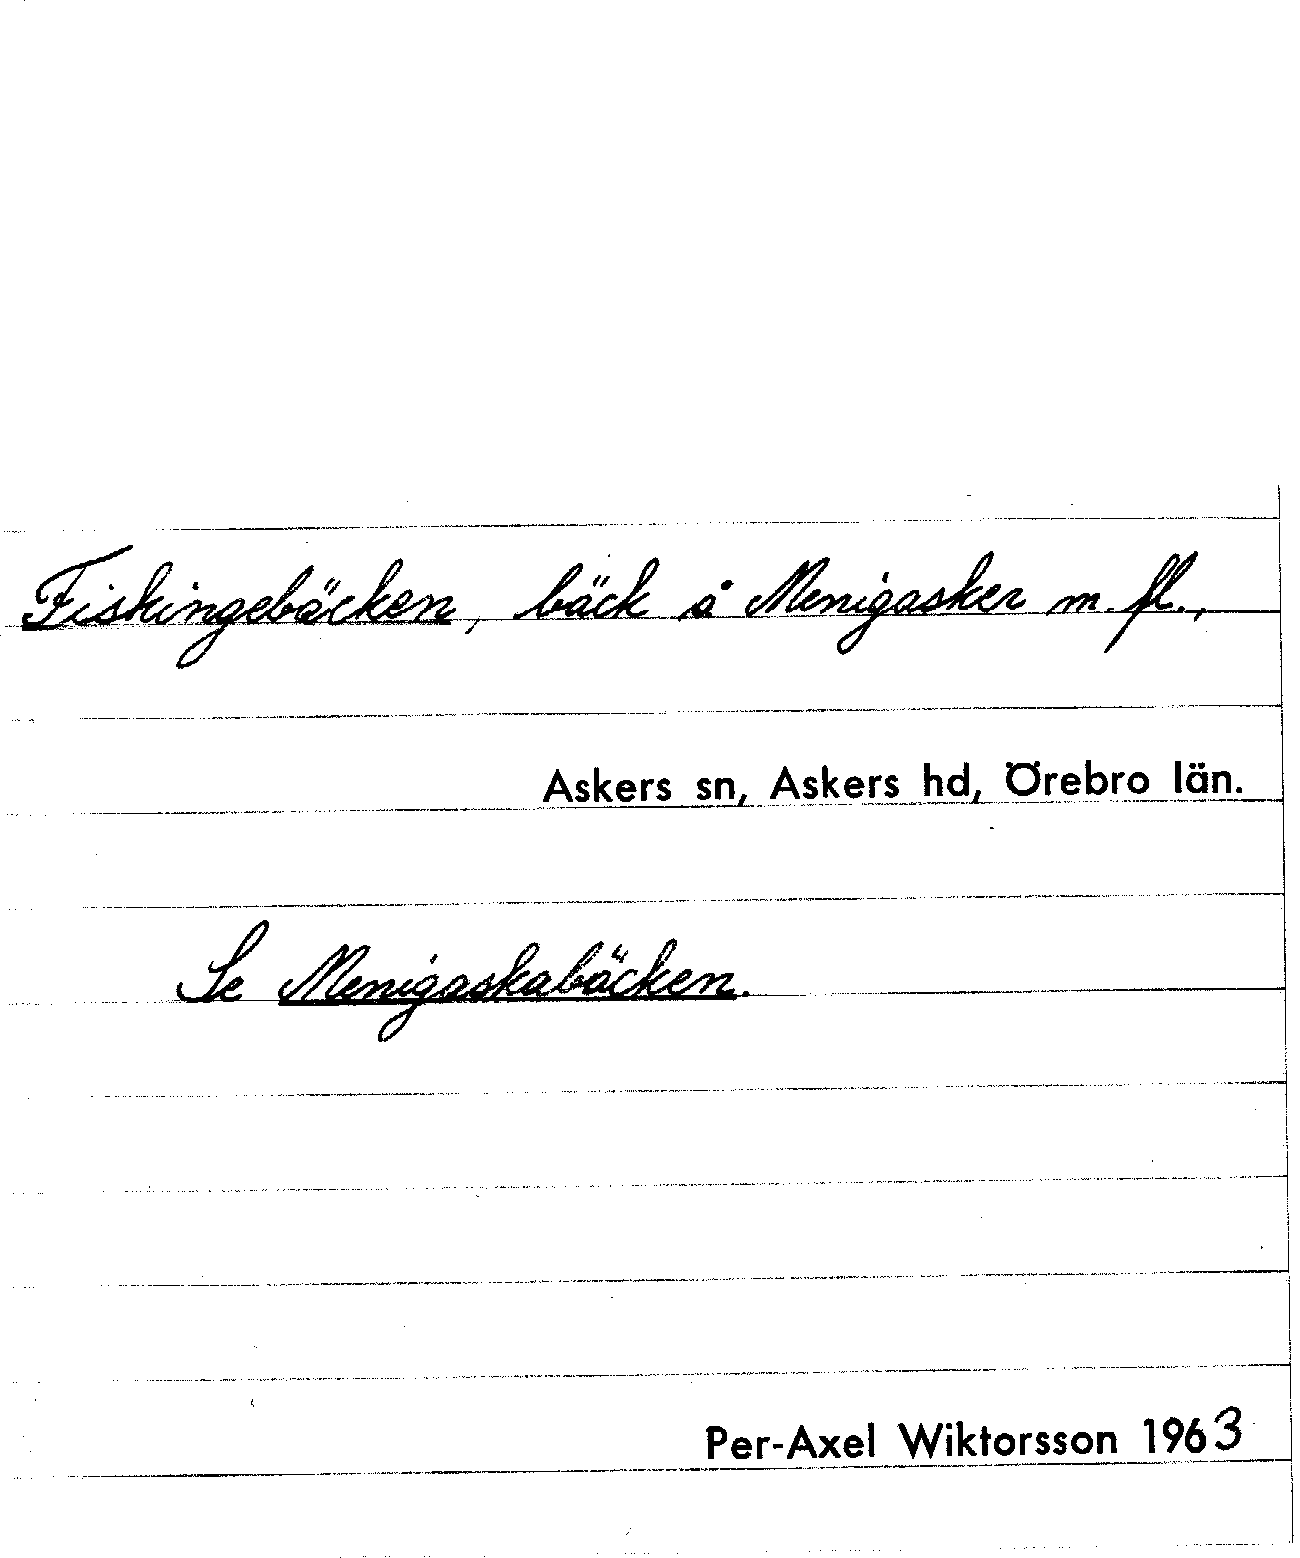 Fiskingebäcken, bäck å Menigasker m. fl.,
Askers sn, Askers hd, Örebro län.
Se Menigaskabäcken.
Per-Axel Wiktorsson 1963